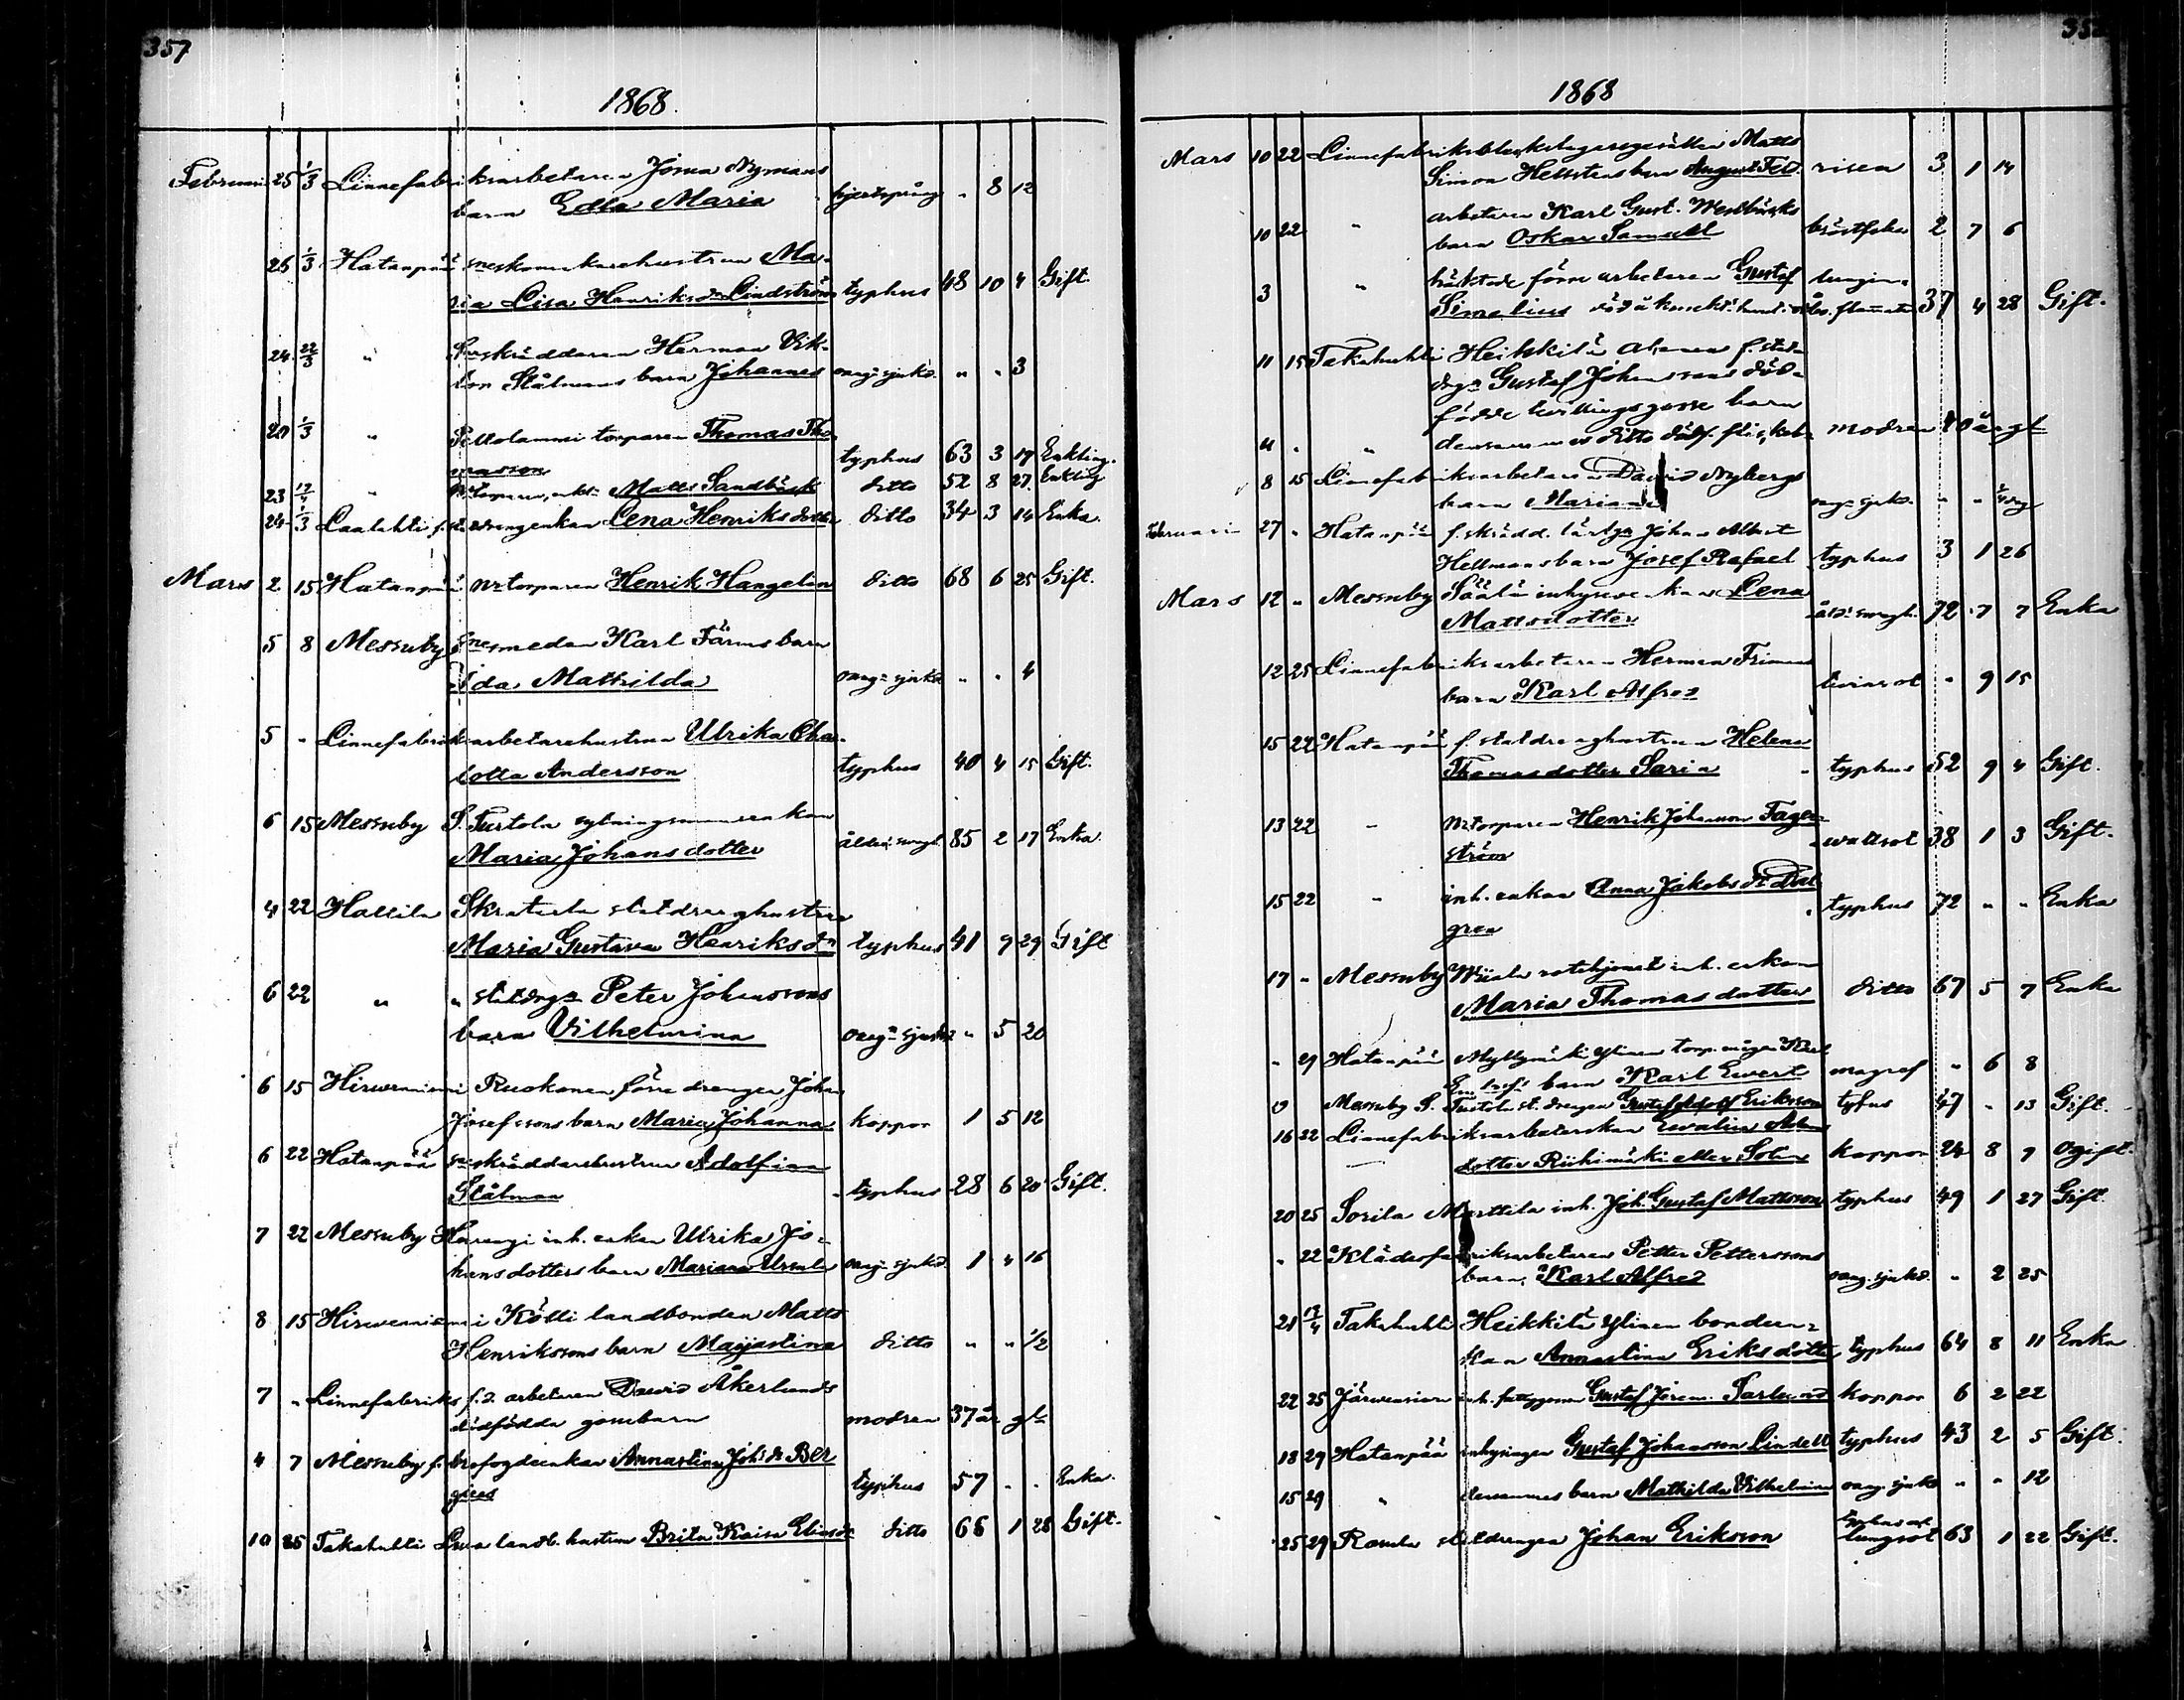 357
1868.
Februari 25 1/3 Linnefabriksarbetaren Josua Nymans
barn Edla Maria hjertsprång " 8 12
26 1/3 Hatanpää Ma-
ria Lisa Henriksdr Lindström typhus 48 10 4 Gift.
24 22/3 " skräddaren Herman Vik-
tor Stålmans barn Johannes oang. sjukd. " " 3
20 1/3 " Peltolammi torparen Thomas Tho-
masson typhus 63 3 19 Enkling.
23 12/4 " Matts Sandbäck ditto 52 8 27 Enkling
24 1/3 Laalahti Lena Henriksdotter ditto 34 3 14 Enka.
Mars 2 15 Hatanpää torparen Henrik Hangelin ditto 68 6 25 Gift.
5 8 Messuby smeden Karl Färms barn
Ida Mathilda oang. sjukd. " " 4
5 " Linnefabriksarbetarehustrun Ulrika Char-
lotta Andersson typhus 40 4 15 Gift.
6 15 Messuby S. Turtola sytningsmansenkan
Maria Johansdotter ålderd. svagh. 85 2 17 Enka.
4 22 Hallila statdrenghustrun
Maria Gustava Henriksdr typhus 41 9 29 Gift
6 22 " " statdrgn Peter Johanssons
barn Vilhelmina oang. sjukd " 5 20
6 15 Hirwenniemi Ruokonen förre drengen Johan
Josefssons barn Maria Johanna koppor 1 5 12
6 22 Hatanpää skräddarehustrun Adolfina
Stålman typhus 28 6 20 Gift.
7 22 Messuby inh. enkan Ulrika Jo-
hansdotters barn Mariana Ursula oang. sjukd. 1 4 16
8 15 Hirwenniemi Kölli landbonden Matts
Henrikssons barn Majastina ditto " " 1/2
7 " Linnefabriks f.d. arbetaren David Åkerlunds
dödfödda gossebarn modren 37 år gl.
4 7 Messuby f. brofogdeenkan Annastina Johsdr Ber
gius typhus 57 " " Enka.
10 25 Takahuhti landb. hustrun Brita Kaisa Eliasdr ditto 66 1 28 Gift.
1868
Mars 10 22 Linnefabriks Matts
Simon Hellstens barn August Ferd. risen 3 1 14
10 22 " arbetaren Karl Gust. Westbäcks
barn Oskar Samuel bröstfeber 2 7 6
3 " häktade förre arbetaren Gustaf lungin-
Simelius 37 4 28 Gift.
11 15 Takahuhti Heikkilä Alanen f. stat-
drgn Gustaf Johanssons död-
födde tvillingsgosse barn
11 " " densammes ditto dödf. flickeb. modren 40 år gl
8 15 Linnefabriksarbetaren David Nybergs
barn Maria oang. sjukd. " "
Februari 27 " Hatanpää f. skrädd. Johan Albert
Hellmans barn Josef Rafael typhus 3 1 26
Mars 12 " Messuby Säälä inhyses enkan Lena
Mattsdotter åld. svagh. 72 7 7 Enka
12 25 Linnefabriksarbetaren Herman Frimans
barn Karl Alfred tvinsot " 9 15
15 22 Hatanpää f. statdrenghustrun Helena
Thomasdotter Sarin typhus 52 9 4 Gift.
13 22 " torparen Henrik Johansson Fager-
ström wattsot 38 1 3 Gift.
15 22 " inh. enkan Anna Jakobsdr Dal
gren typhus 72 " " Enka
17 " Messuby Wiiala rotehjonet inh. enkan
Maria Thomasdotter ditto 67 5 7 Enka
" 29 Hatanpää Myllymäki Ylinen torp. mågen Karl
barn Karl Evert magref " 6 8
Messuby S. Turtola st. drengen Gustaf Adolf Eriksson tyfus 47 " 13 Gift.
16 22 Linnefabriksarbeterskan Evalina
dotter Riihimäki eller koppor 24 8 7 Ogift.
20 25 Sorila Marttila inh. Joh. Gustaf Mattsson typhus 49 1 27 Gift.
" 22 Klädesfabriksarbetaren Petter Petterssons
barn Karl Alfred oang. sjukd. " 2 25
21 12/4 Takahuhti Heikkilä Ylinen bondeen-
kan Annastina Eriksdotter typhus 64 8 11 Enka
22 25 Järvensivu inh. Gustaf Jerem. Sarlund koppor 6 2 22
18 29 Hatanpää inhysingen Gustaf Johansson Lindell typhus 43 2 5 Gift.
15 29 " densammes barn Mathilda Vilhelmina oang. sjukd " " 12
25 29 statdrengen Johan Eriksson lungsot 63 1 22 Gift.